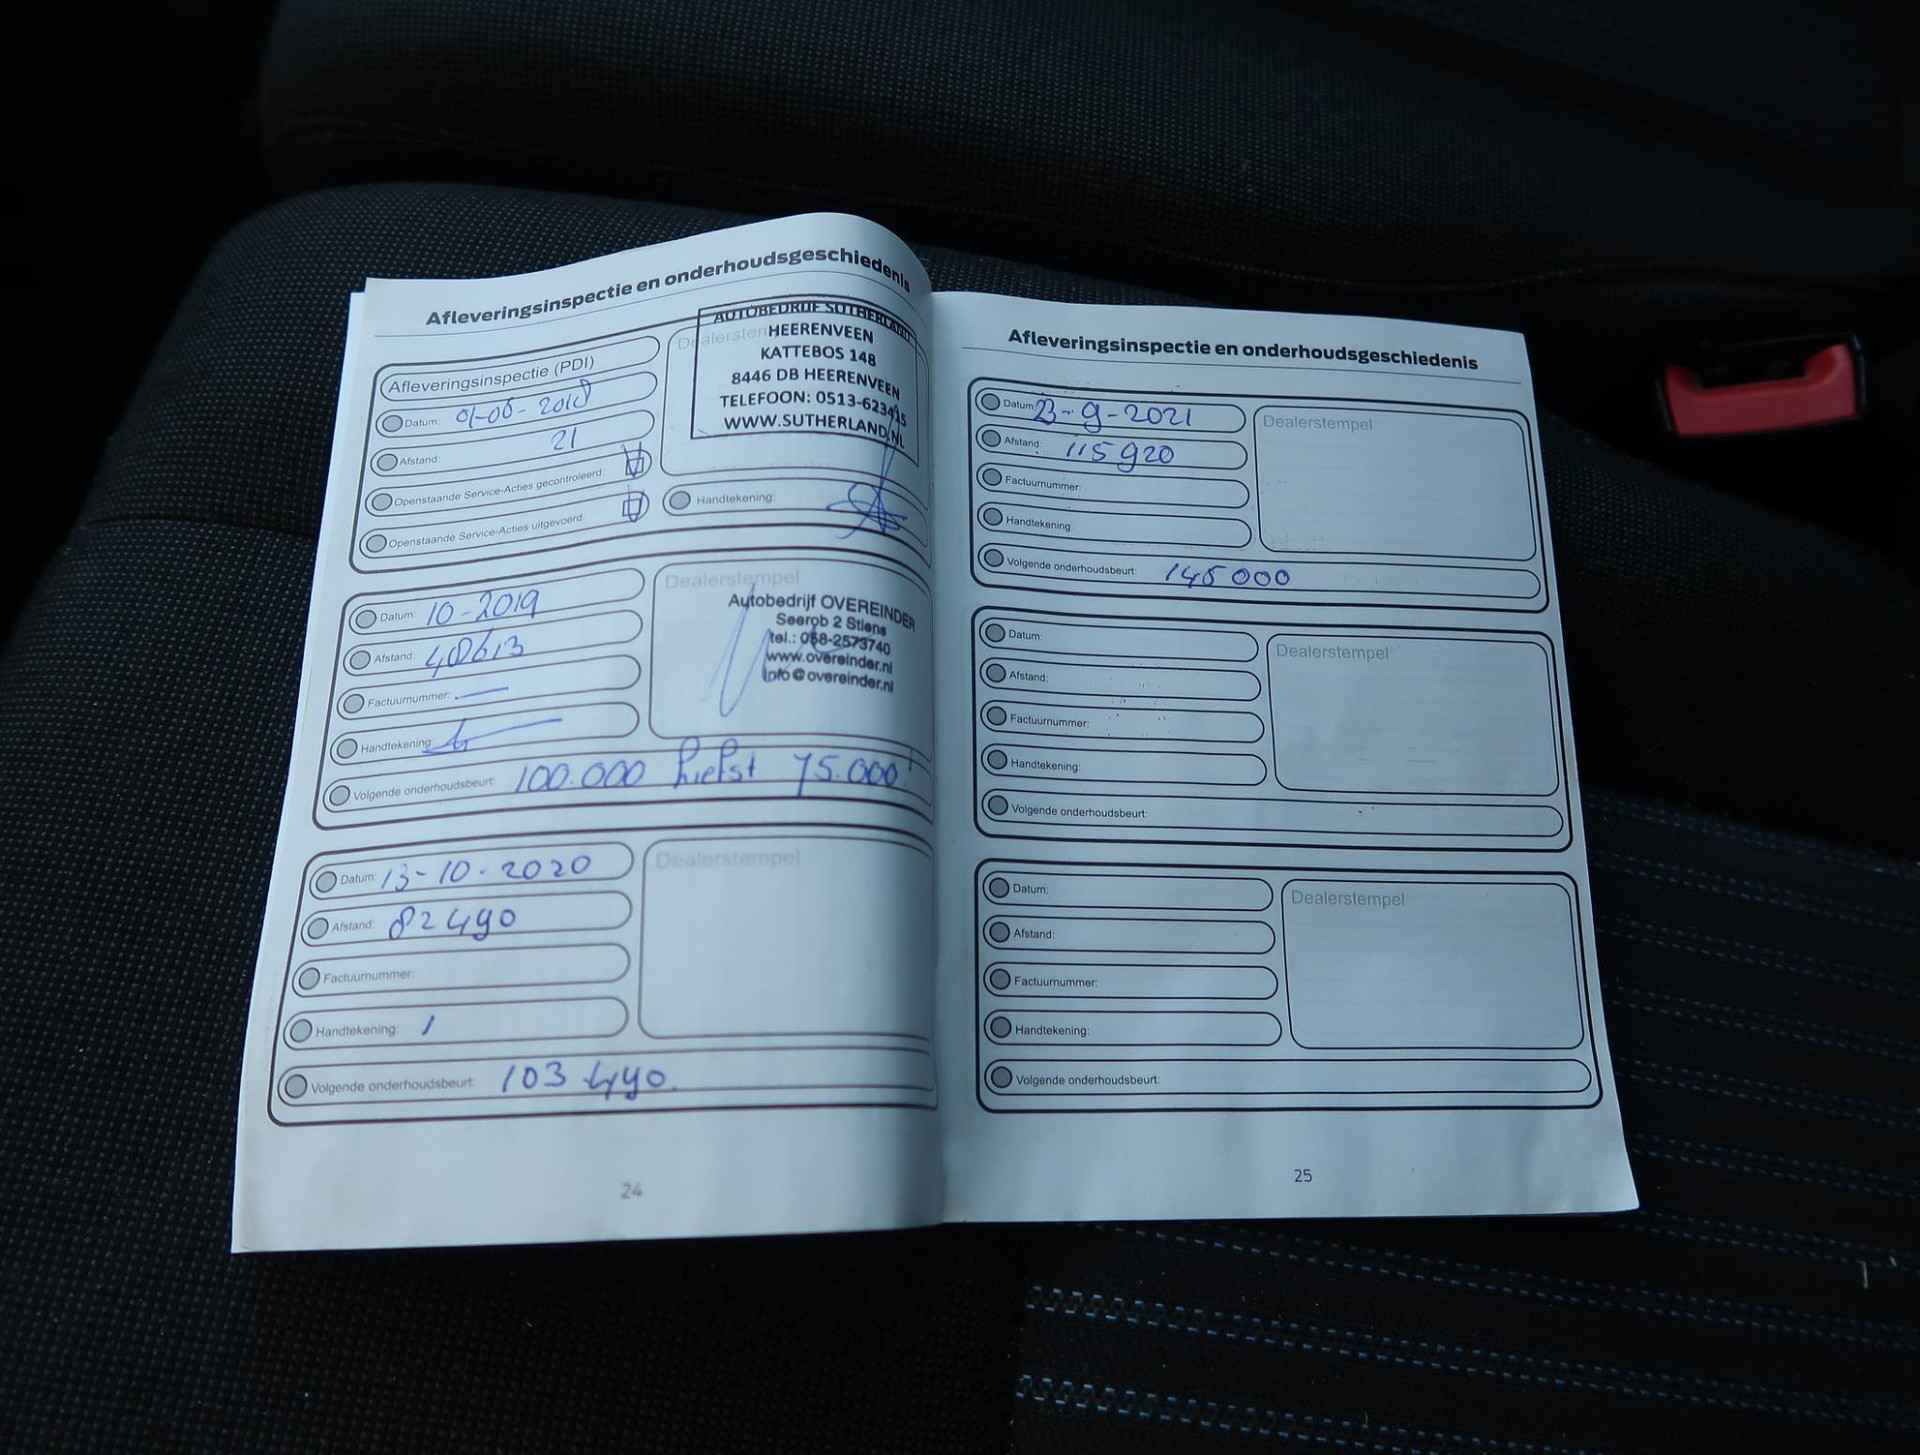 Afleveringsinspectie en onderhoudsgeschiedenis
Afleveringsinspectie (PDI)
Datum: 01-06-2018
Afstand: 21
Openstaande Service-Acties gecontroleerd:
Openstaande Service-Acties uitgevoerd:
Dealerstem
AUTOBEDRIJF SUTHERLAND
HEERENVEEN
KATTEBOS 148
8446 DB HEERENVEEN
TELEFOON: 0513-623415
WWW.SUTHERLAND.NL
Handtekening:
Datum: 10-2019
Afstand: 48613
Factuurnummer: —
Handtekening:
Volgende onderhoudsbeurt: 100.000 liefst 75.000!
Dealerstempel
Autobedrijf OVEREINDER
Seerob 2 Stiens
tel.: 058-2573740
www.overeinder.nl
info@overeinder.nl
Datum: 13-10-2020
Afstand: 82490
Factuurnummer:
Handtekening:
Volgende onderhoudsbeurt: 103490.
Dealerstempel
24
Afleveringsinspectie en onderhoudsgeschiedenis
Datum: 23-9-2021
Afstand: 115920
Factuurnummer:
Handtekening:
Volgende onderhoudsbeurt: 145000
Dealerstempel
Datum:
Afstand:
Factuurnummer:
Handtekening:
Volgende onderhoudsbeurt:
Dealerstempel
Datum:
Afstand:
Factuurnummer:
Handtekening:
Volgende onderhoudsbeurt:
Dealerstempel
25